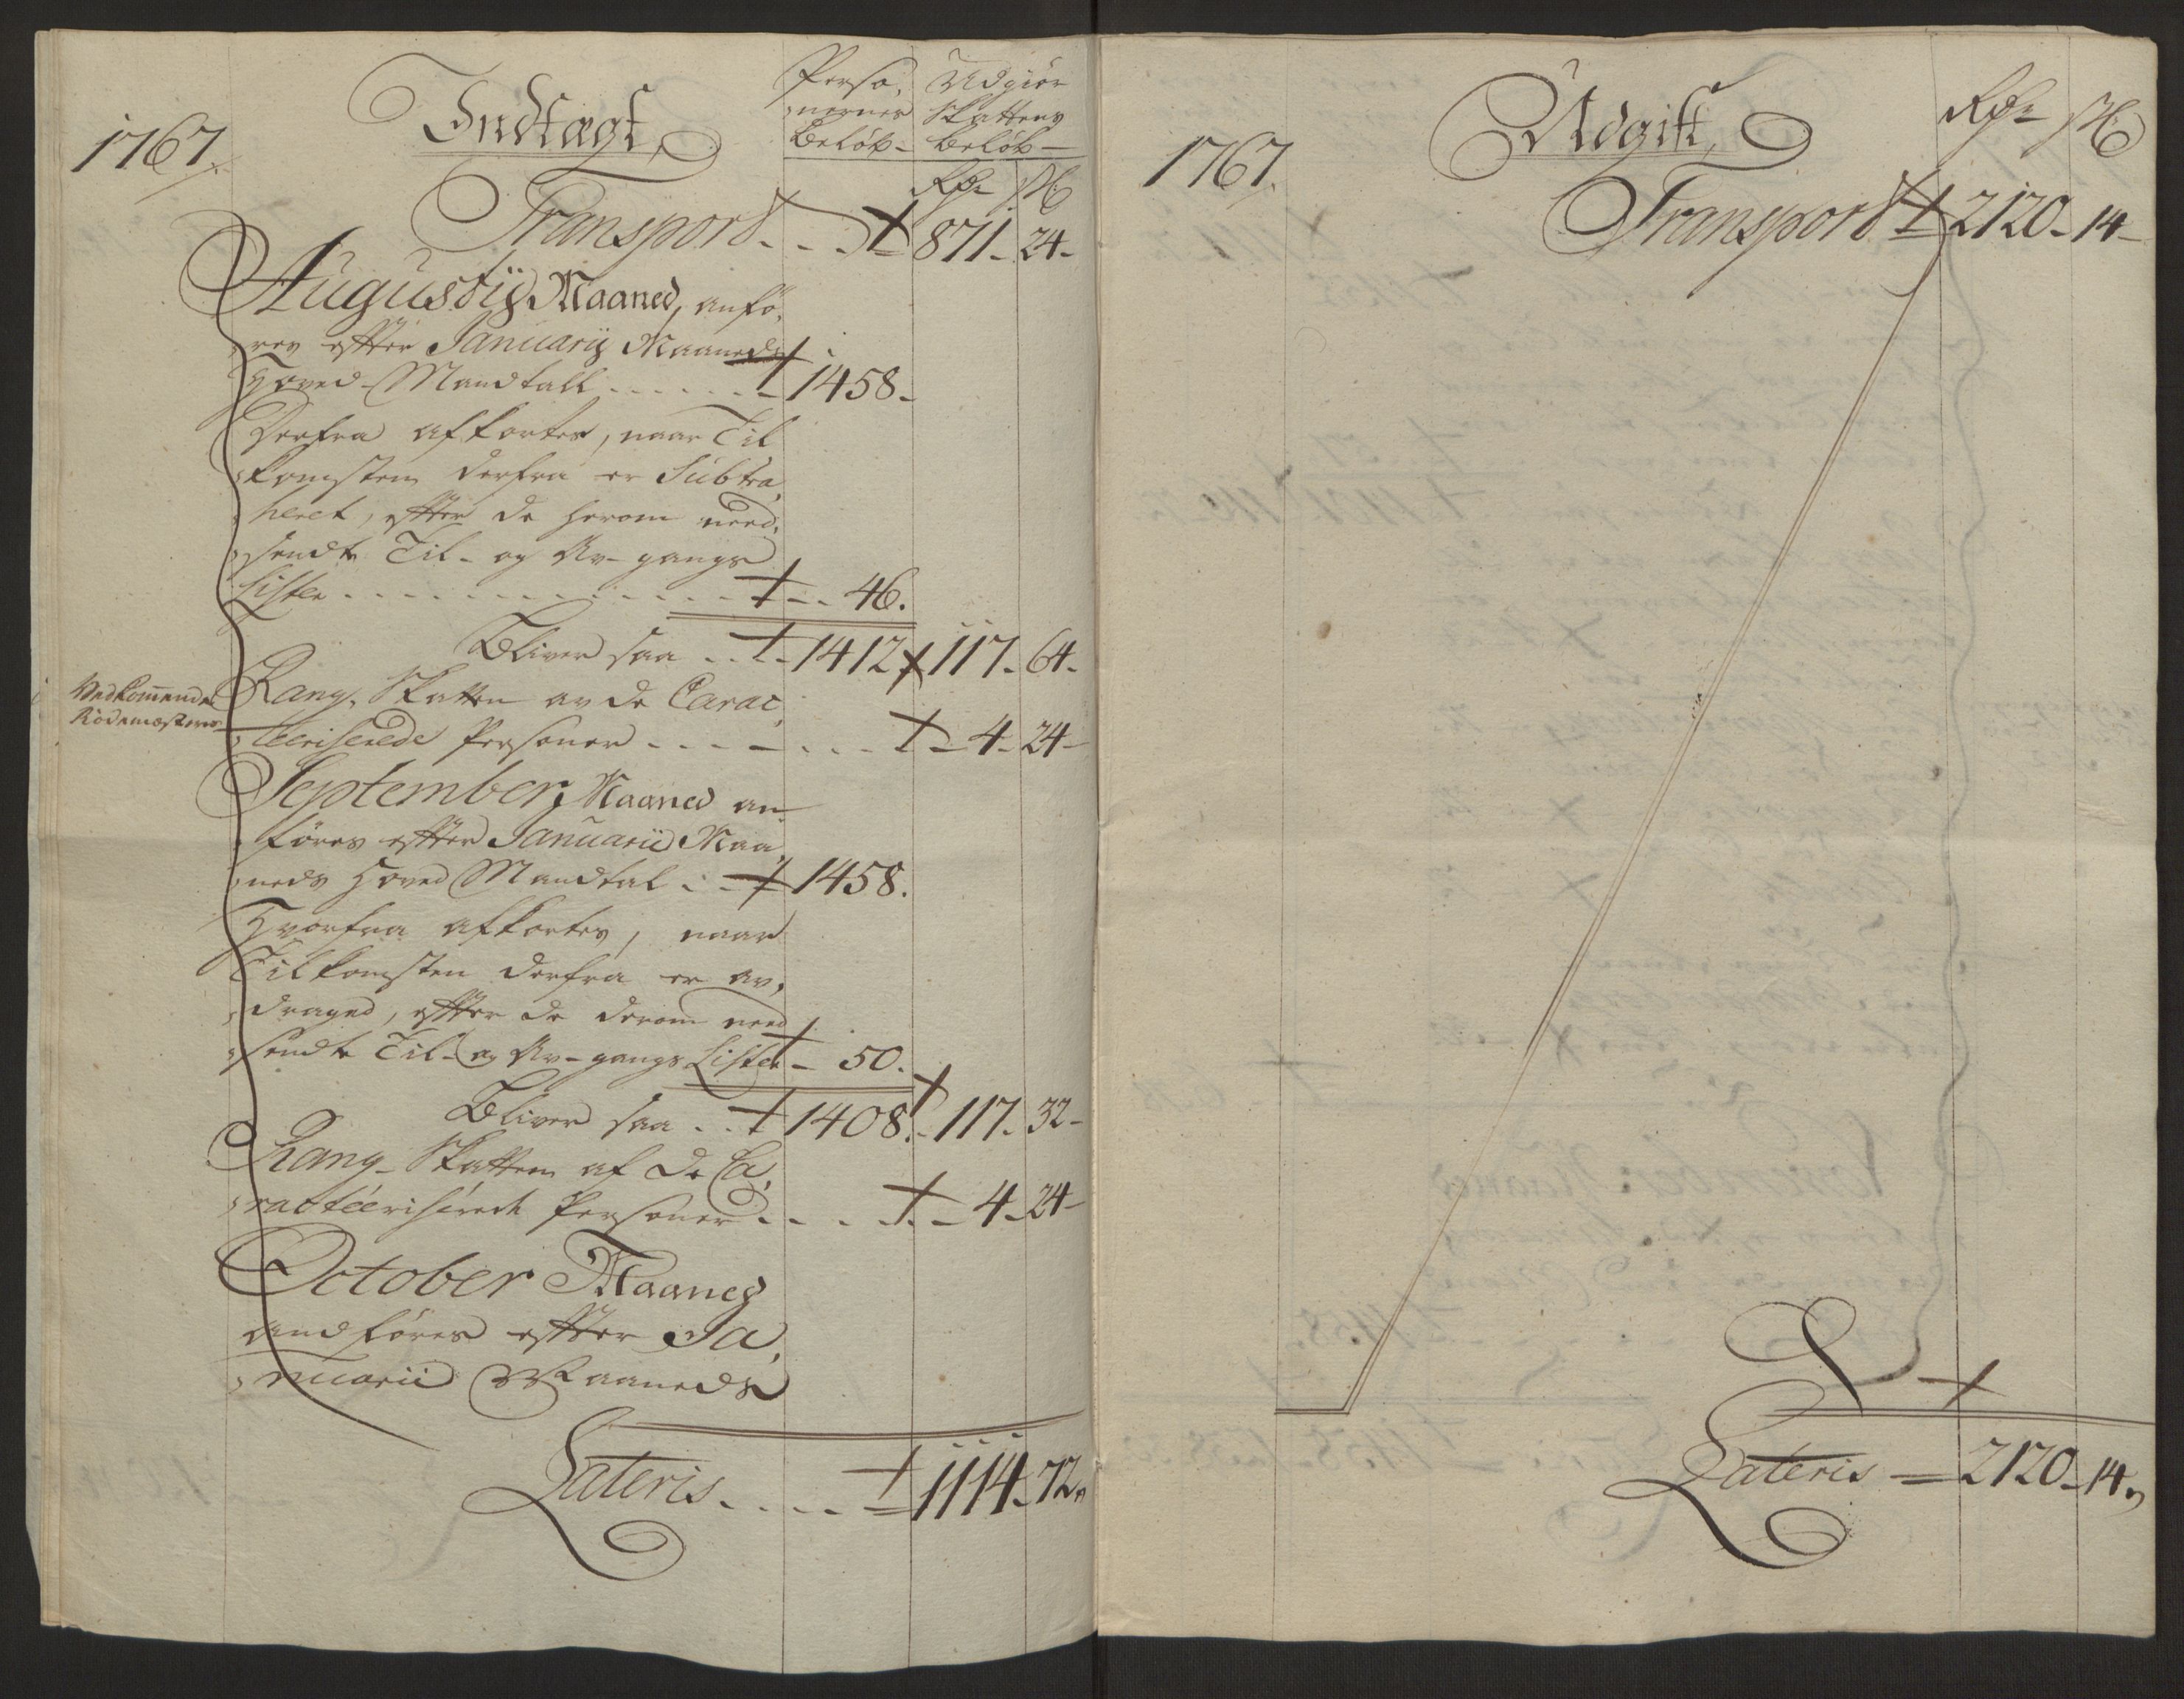 1767.
Indtægt,
Perso,
,,nernes
Beløb-
Udgiør
Skattens
Beløb-
Rdr
Transport. - - 871. 24-
Augustij Maaned, anfø,
,,res efter Januarij Maaneds
Hoved-Mandtall - - - - - - 1458.
Derfra afkortes, naar Til
,,komsten derfra er Subtra,
,,heret, efter de herom need,
,,sendte Til- og Av-gangs
Lister - - - - - - - - - 46.
Bliver saa - - 1412 117. 64-
Vedkommende
Rodemestere
Rang-Skatten av de Carac,
,,teeriserede Personer - - - - - - - 4. 24-
September Maaned an-
,,føres efter Januarii Maa,
,,neds Hoved Mandtal - - 1458.
Hvorfra afkortes, naar
Tilkomsten derfra er av,
,,draged, efter de derom need
,,sendte Til- og Av-gangs Lister - 50.
Bliver saa - - 1408. 117. 32-
Rang-Skatten af de Ca,
,,racteeriserede Personer - - - - - 4. 24-
October Maaned
andføres efter Ja,
,,nuarii Maaneds
Lateris. - - - - 1114. 72.
1767.
Udgift,
Rdr
Transport 2120. 14-
Lateris - 2120. 14.